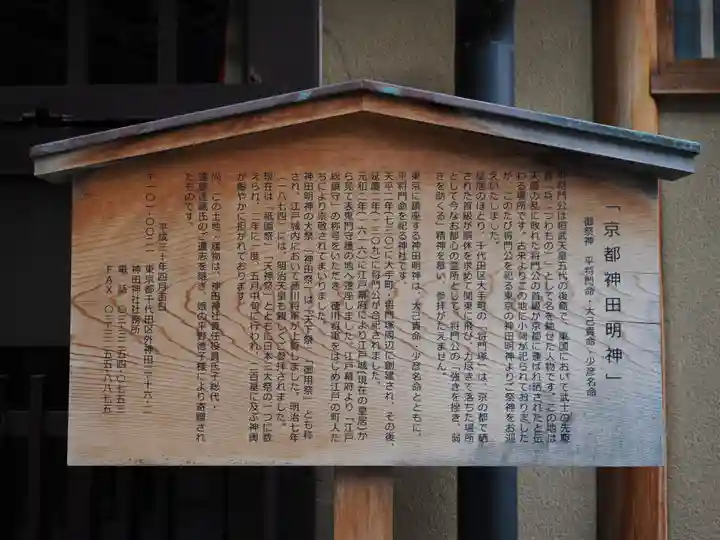 「京都神田明神」
御祭神　平将門命・大己貴命・少彦名命
平将門公は桓武天皇五代の後裔で、東国において武士の先駆
者「兵（つわもの）」として名を馳せた人物です。この地は
天慶の乱に敗れた将門公の首級が京都に運ばれ晒されたと伝
わる場所です。古来よりこの地に小祠が祀られておりました
が、このたび将門公を祀る東京の神田明神よりご祭神をお迎
えいたしました。
皇居のほとり、千代田区大手町の「将門塚」は、京の都で晒
された首級が胴体を求めて関東に飛び、力尽きて落ちた場所
として今なお都心の霊所として、将門公の「強きを挫き、弱
きを助くる」精神を慕い、参拝がたえません。
東京に鎮座する神田明神は、大己貴命、少彦名命とともに、
平将門命を祀る神社です。
天平二年（七三〇）に大手町・将門塚周辺に創建され、その後、
延慶二年（一三〇九）に将門公が合祀されました。
元和二年（一六一六）に江戸幕府により江戸城（現在の皇居）か
ら見て表鬼門守護の地へ遷座しました。江戸幕府より「江戸
総鎮守」の称号をいただき、徳川将軍をはじめ江戸の町人た
ちにより崇敬されてまいりました。
神田明神の大祭「神田祭」は「天下祭」「御用祭」とも称
され、江戸城内において徳川将軍が上覧しました。明治七年
（一八七四）には、明治天皇も親しくご参拝されました。
現在は「祇園祭」「天神祭」とともに日本三大祭の一つに数
えられ、二年に一度、五月中旬に行われ、二百基に及ぶ神輿
が賑やかに担がれております。
尚、この土地・建物は、神田神社責任役員氏子総代・
遠藤達藏氏のご遺志を継ぎ、娘の平野徳子様により寄贈され
たものです。
平成三十年四月吉日
〒一〇一-〇〇二一
東京都千代田区外神田二-十六-二
神田神社社務所
電　話　〇三-三二五四-〇七五三
ＦＡＸ　〇三-三二五五-八八七五